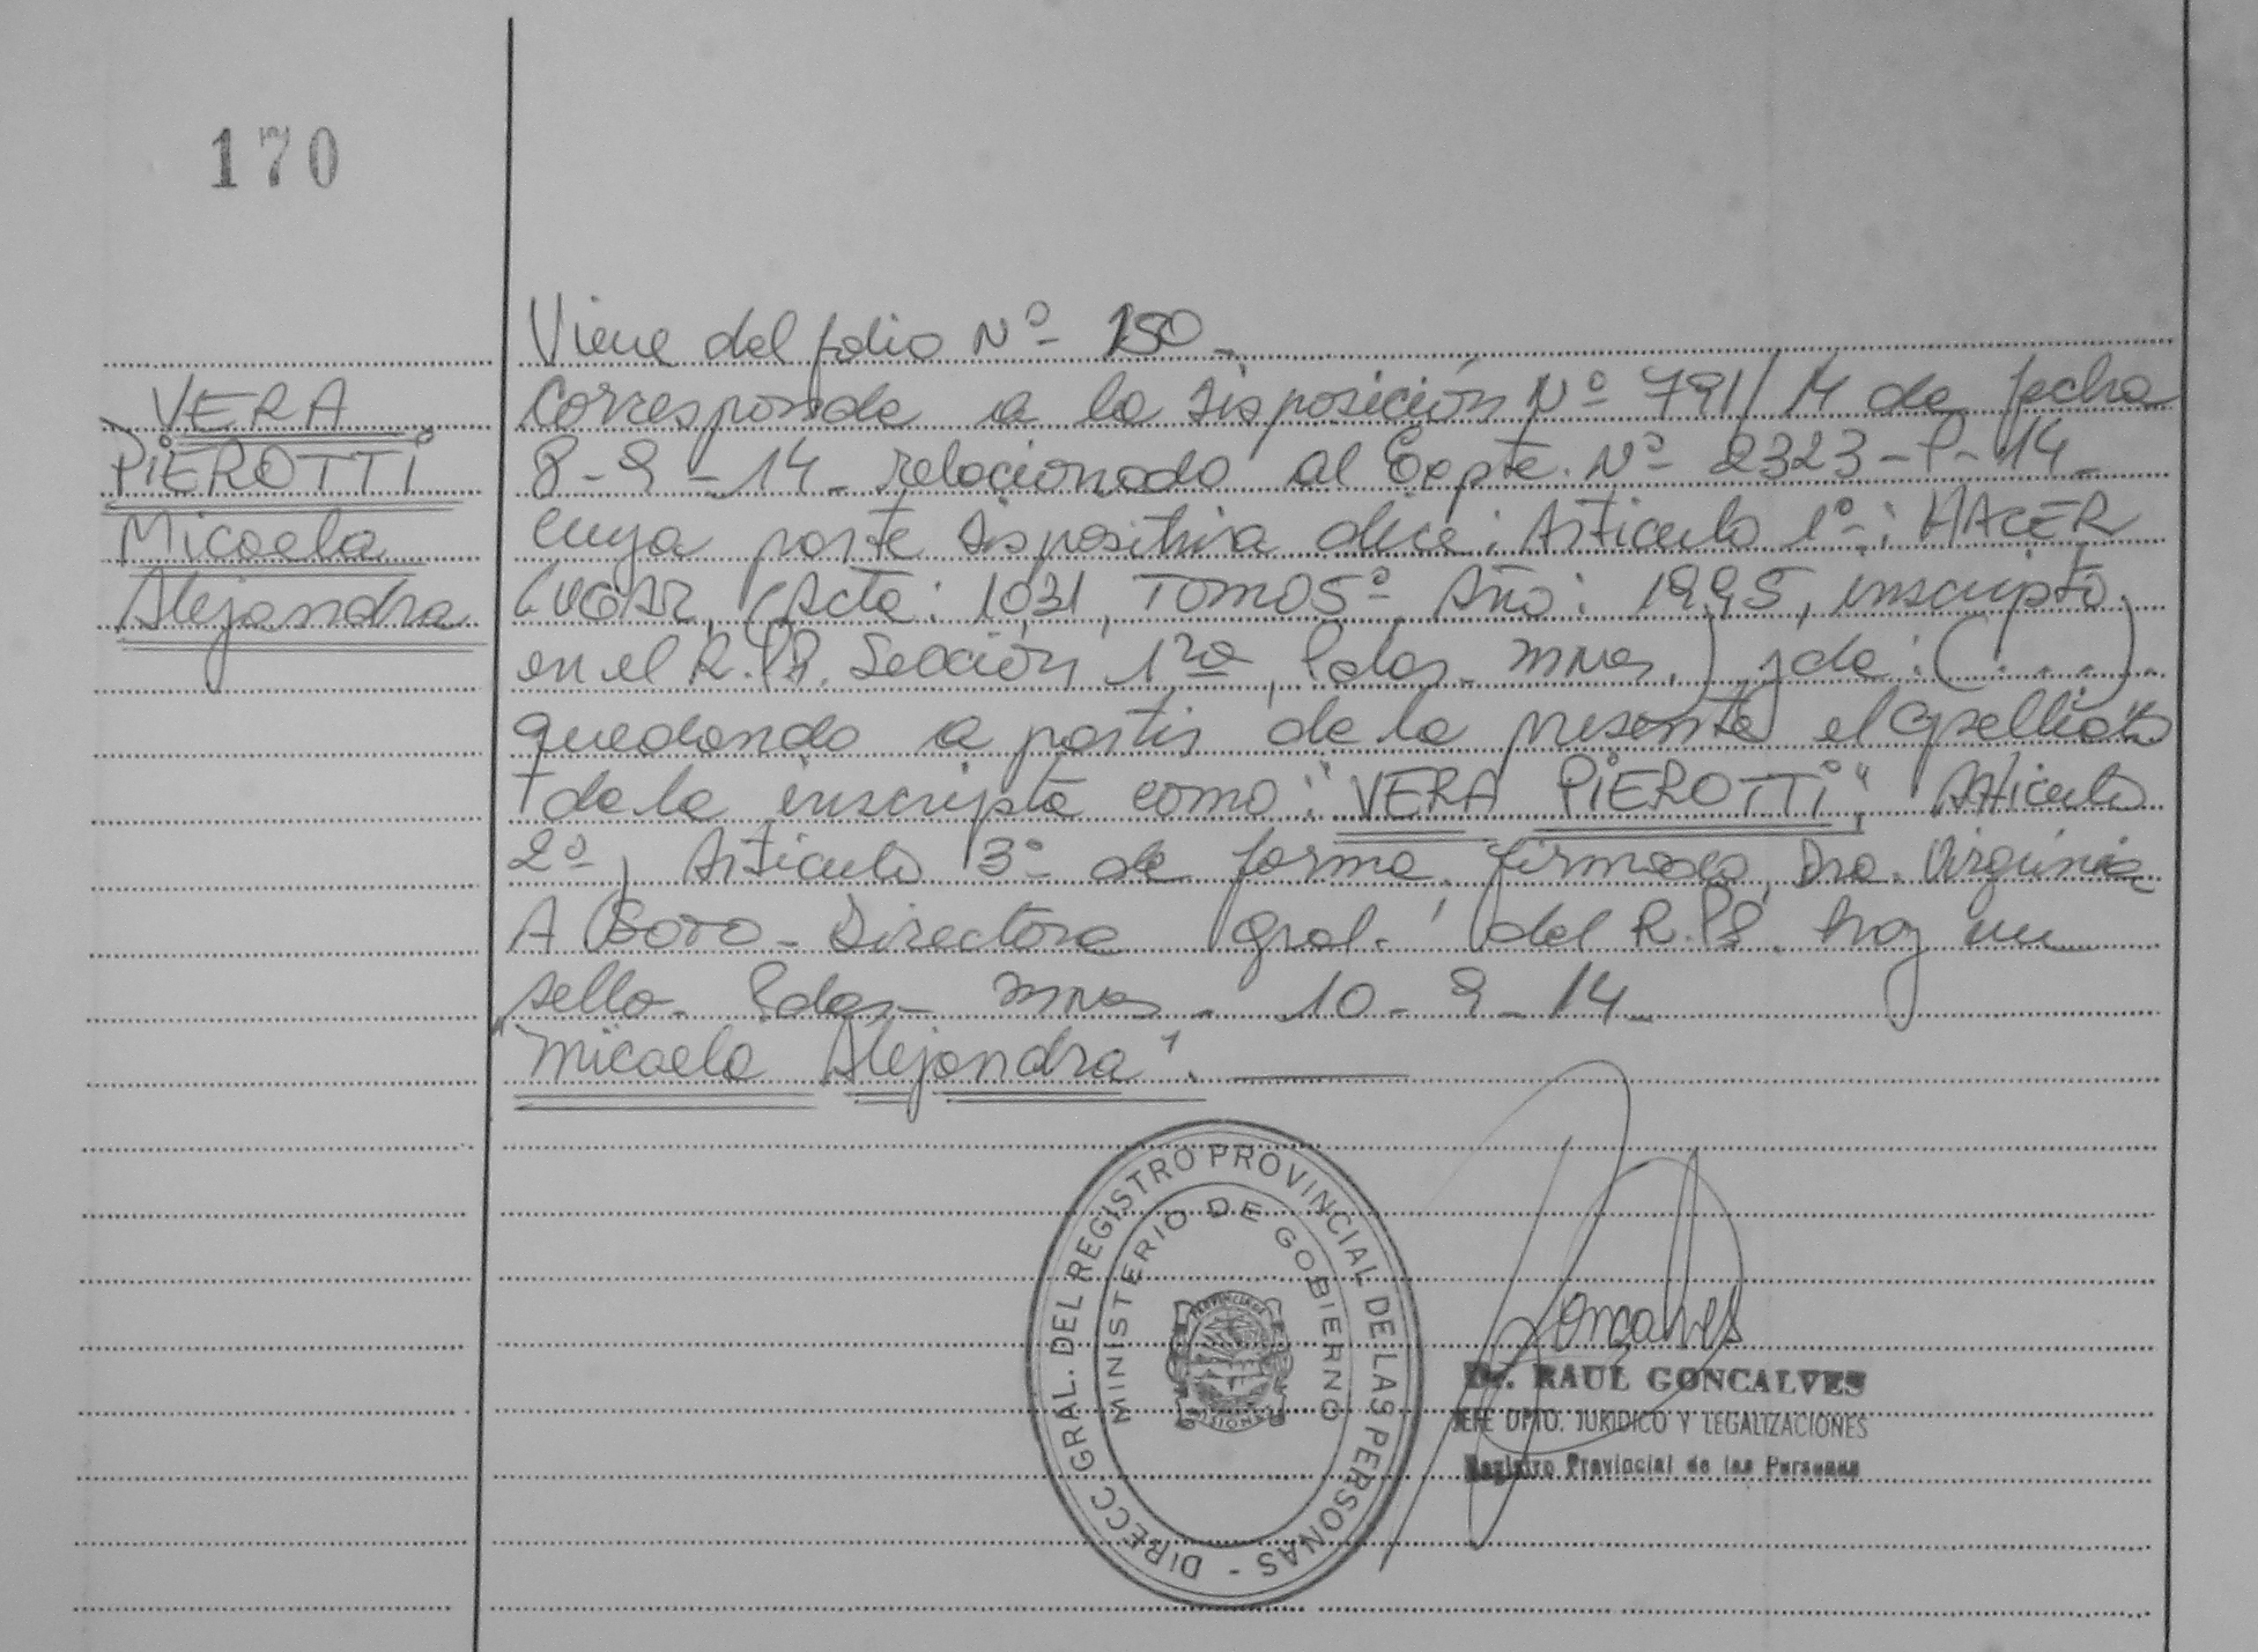 170
Viene del folio Nº 150 -
VERA
PiEROTTi
Micaela
Alejandra
Corresponde a la disposición Nº 791/14 de fecha
8-9-14- relacionado al Expte. Nº 2323-P-14-
cuya parte dispositiva dice: Articulo 1º-: HACER
LUGAR, (Acta: 1031, TOMO 5º Año: 1995, inscripto
en el R.P.P. Sección 1ra, Pdas- mnes.) y de: (.....)
quedando a partir de la presente el apellido
de la inscripta como: "VERA PiEROTTi", Articulo
2º, Articulo 3º de forma, firmado, Dra. Virginia
A Bovo - Directora Gral. del R.P.P. hay un
sello- Pdas- mnes - 10-9-14-
"Micaela Alejandra".
DIRECC GRAL. DEL REGISTRO PROVINCIAL DE LAS PERSONAS -
MINISTERIO DE GOBIERNO
PROVINCIA DE
MISIONES
Goncalves
Dr. RAUL GONCALVES
JEFE DPTO. JURIDICO Y LEGALIZACIONES
Registro Provincial de las Personas